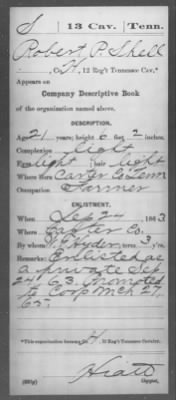 S | 13 Cav. | Tenn.
Robert P. Shell
, Co. H, 12 Reg't Tennessee Cav.*
Appears on
Company Descriptive Book
of the organization named above.
DESCRIPTION.
Age 21 years; height 6 feet 2 inches.
Complexion light
Eyes light; hair light
Where Born Carter Co Tenn
Occupation Farmer
ENLISTMENT.
When Sep 24, 1863.
Where Carter Co.
By whom Hyder; term 3 y'rs.
Remarks: Enlisted as
a private Sep
24 63. Promoted
to Corp Mch 21,
65.
*This organization became Co. H, 13 Reg't Tennessee Cavalry.
Hiatt
Copyist.